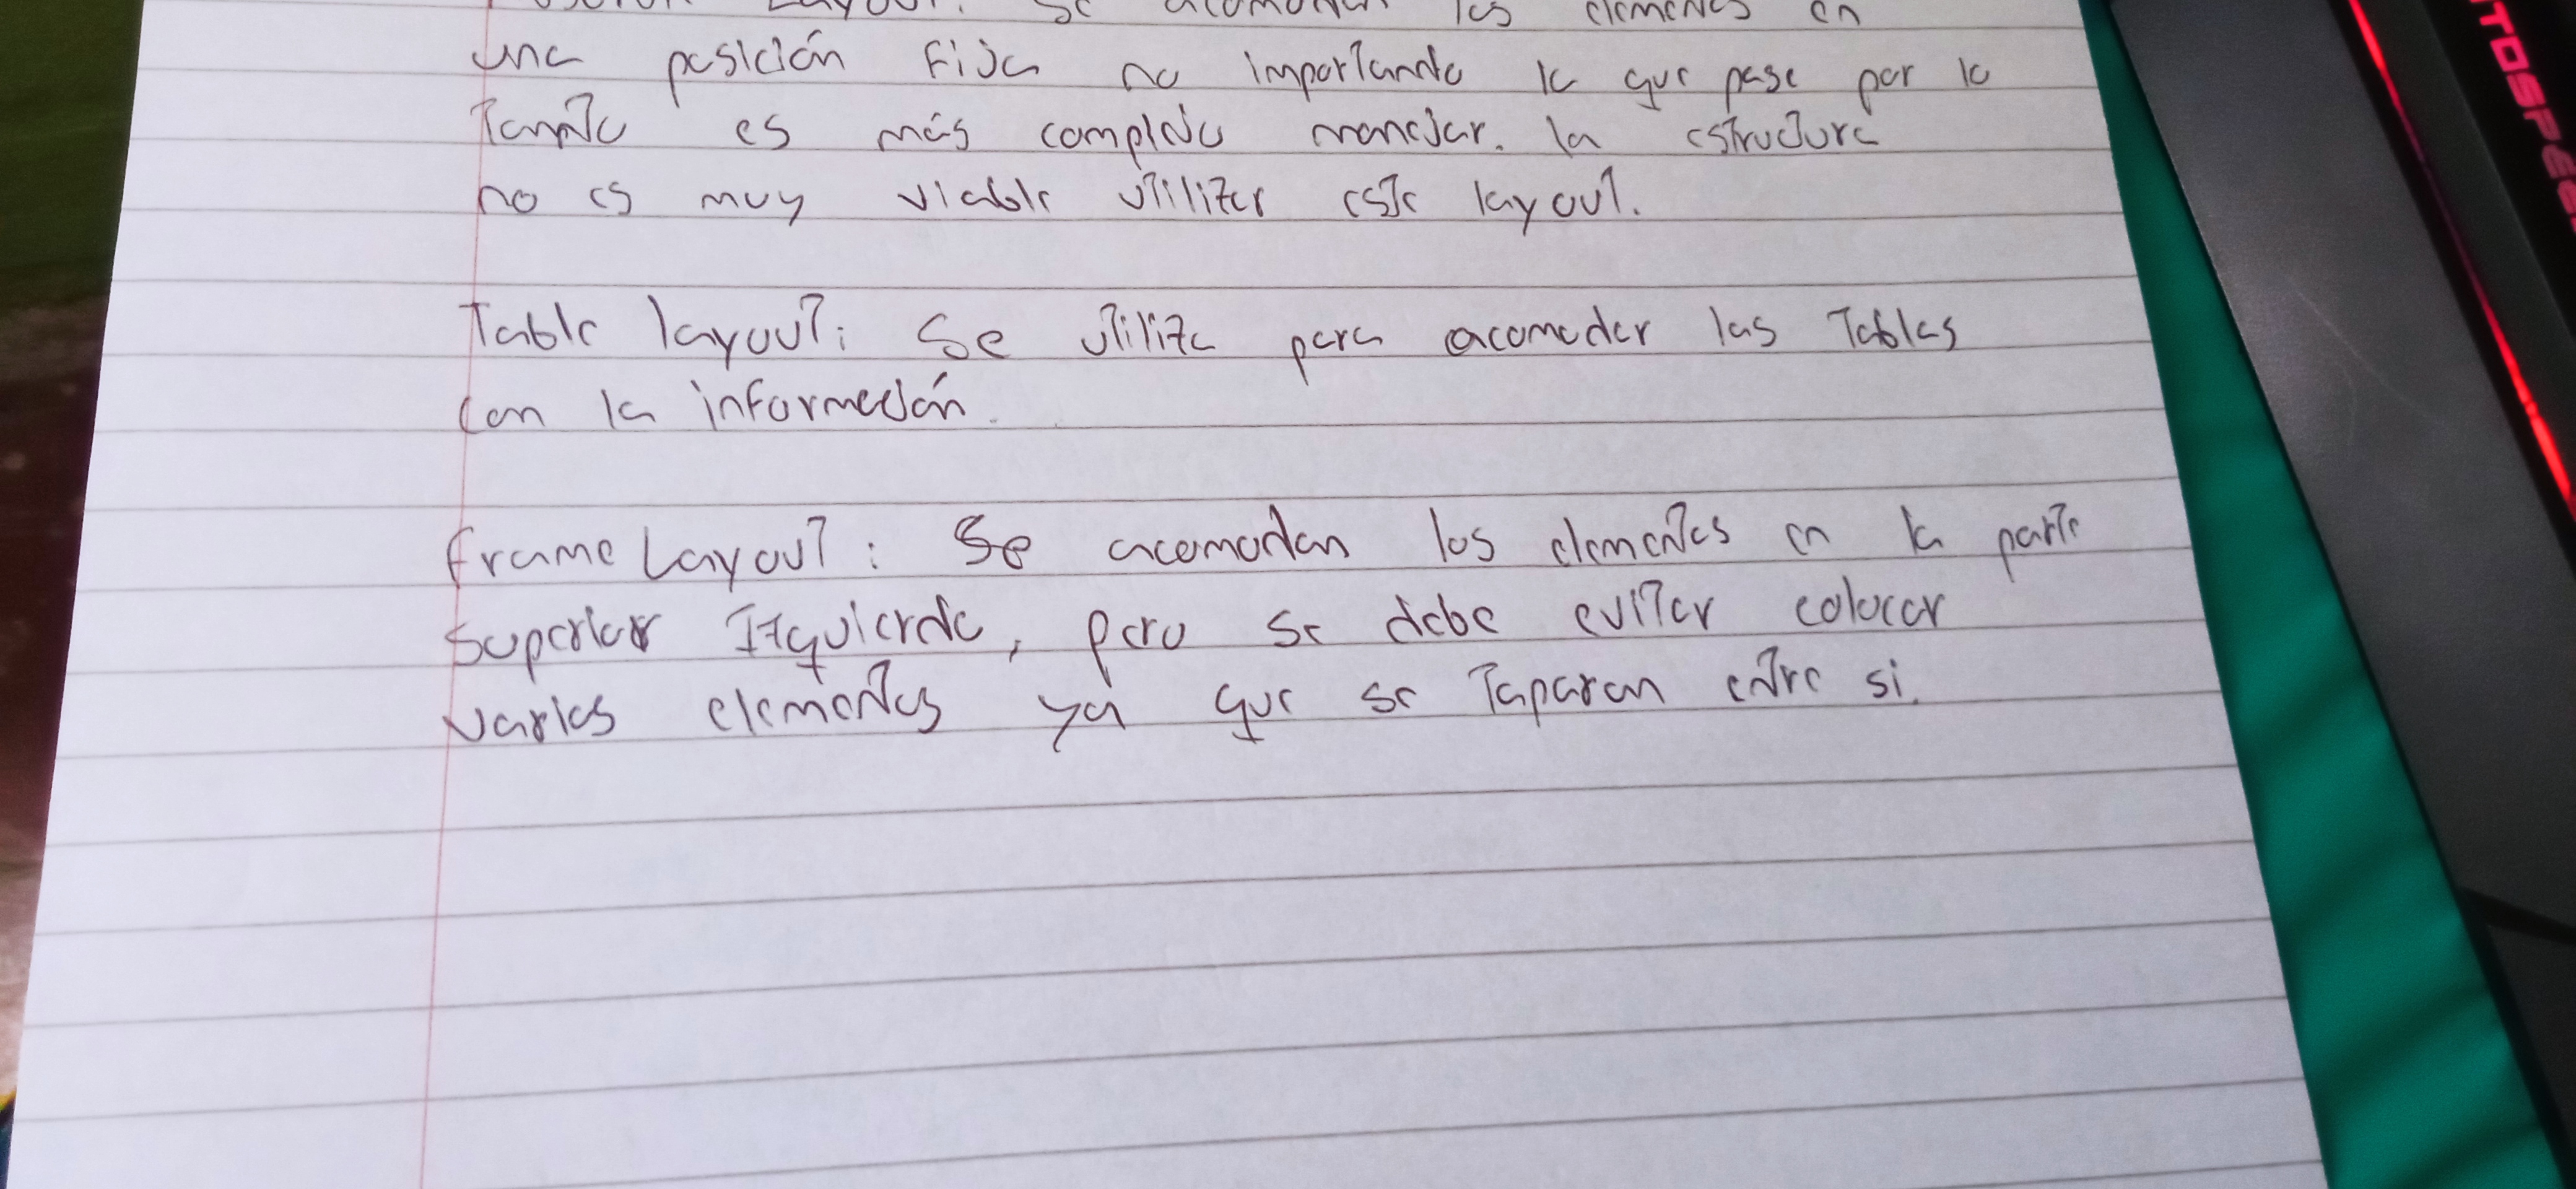 Layout: Se acomodan los elementos en
una posición fija no importando lo que pase por lo
Tanto es más complejo manejar. la estructura
no es muy viable utilizar este layout.
Table layout: Se utiliza para acomodar las Tablas
con la información.
frame Layout: Se acomodan los elementos en la parte
superior Izquierda, pero se debe evitar colocar
varios elementos ya que se Taparan entre si.